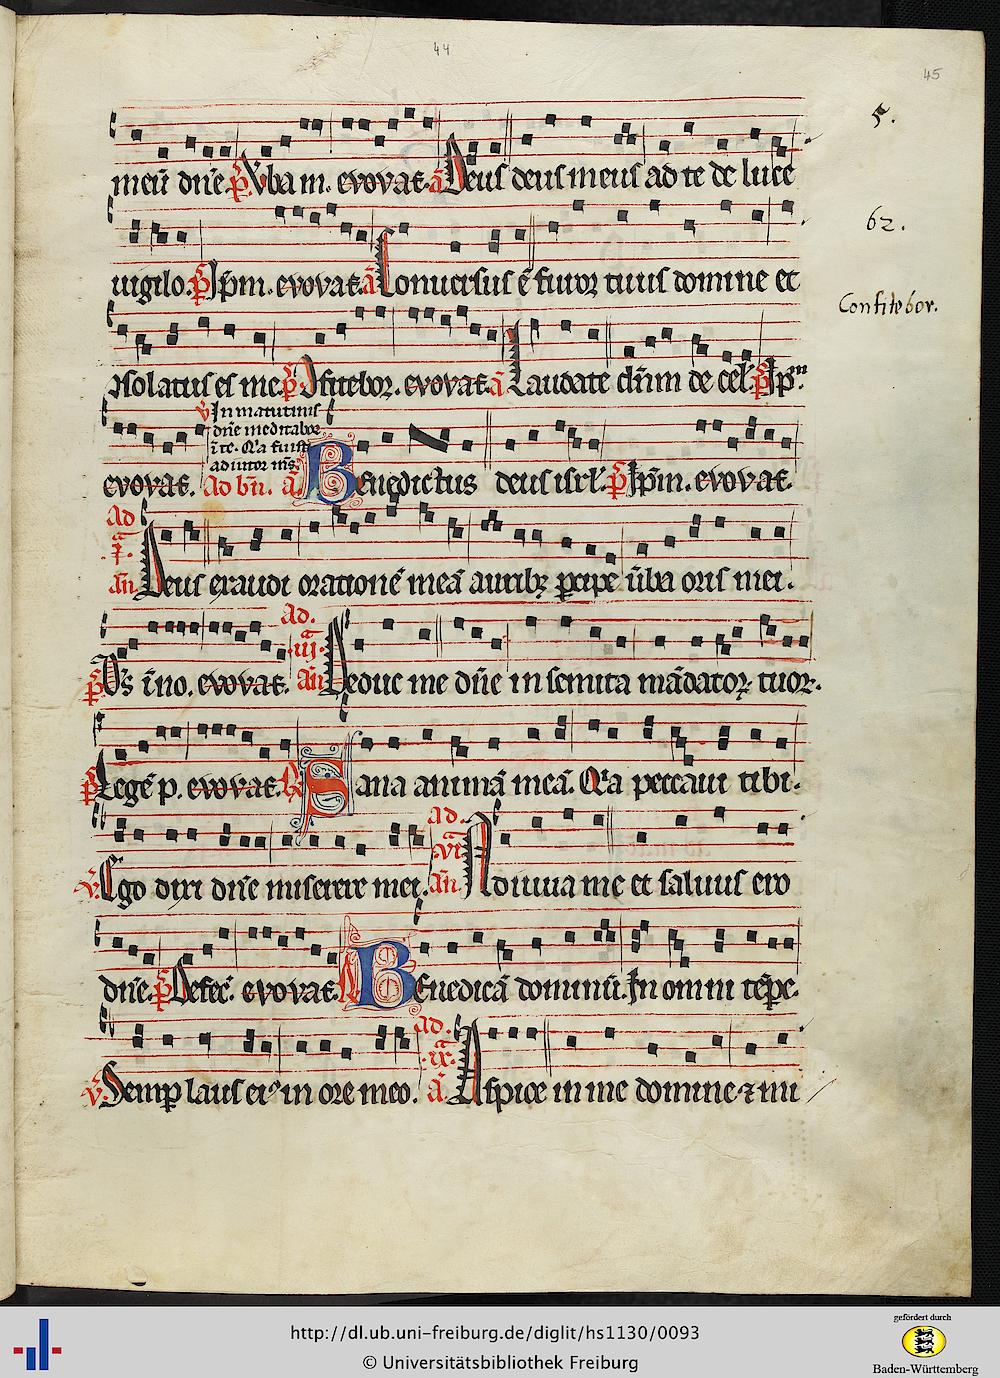 44
45
meū dn̄e ps̄ Vba m. evovae. ā Deus deus meus ad te de luce
5.
uigilo. ps̄ Ip̄m. evovae. ā Conuersus ē furor tuus domine et
62.
Confitebor.
9solatus es me. ps̄ 9fitebor. evovae. ā Laudate dn̄m de cel. ps̄ Ip̄m.
v̄ In matutinis
dn̄e meditabor
ī te. Q'a fuisti
adiutor ms̄.
evovae. Ad bn̄. ā Benedictus deus isrl'. ps̄ Ip̄m. evovae.
Ad
ā
.i.
an̄ Deus exaudi orationē meā auribꝫ ꝑcipe ūba oris mei.
Ad.
ā
.iij.
ps̄ Ds̄ ī no. evovae. an̄ Deduc me dn̄e in semita mādatoꝝ tuoꝝ.
ps̄ Legē p. evovae. ℟ Sana animā meā. Q'a peccaui tibi.
ad.
vi
v̄ Ego dixi dn̄e miserere mei. an̄ Adiuua me et saluus ero
dn̄e. ps̄ Defec̄. evovae. ℟ Benedicā dominū. In omni tēꝑe.
ad.
ā
.ix.
v̄ Semꝑ laus eiꝰ in ore meo. ā. Aspice in me domine ⁊ mi
http://dl.ub.uni-freiburg.de/diglit/hs1130/0093
© Universitätsbibliothek Freiburg
gefördert durch
Baden-Württemberg